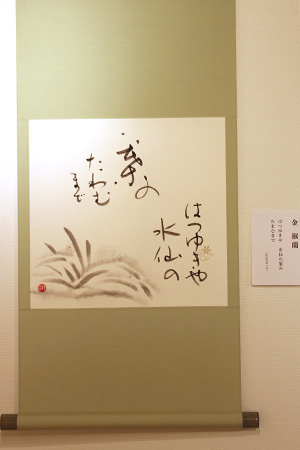 はつゆきや
水仙の
葉の
たわむ
まで
金 淑蘭
はつゆきや 水仙の葉の
たわむまで